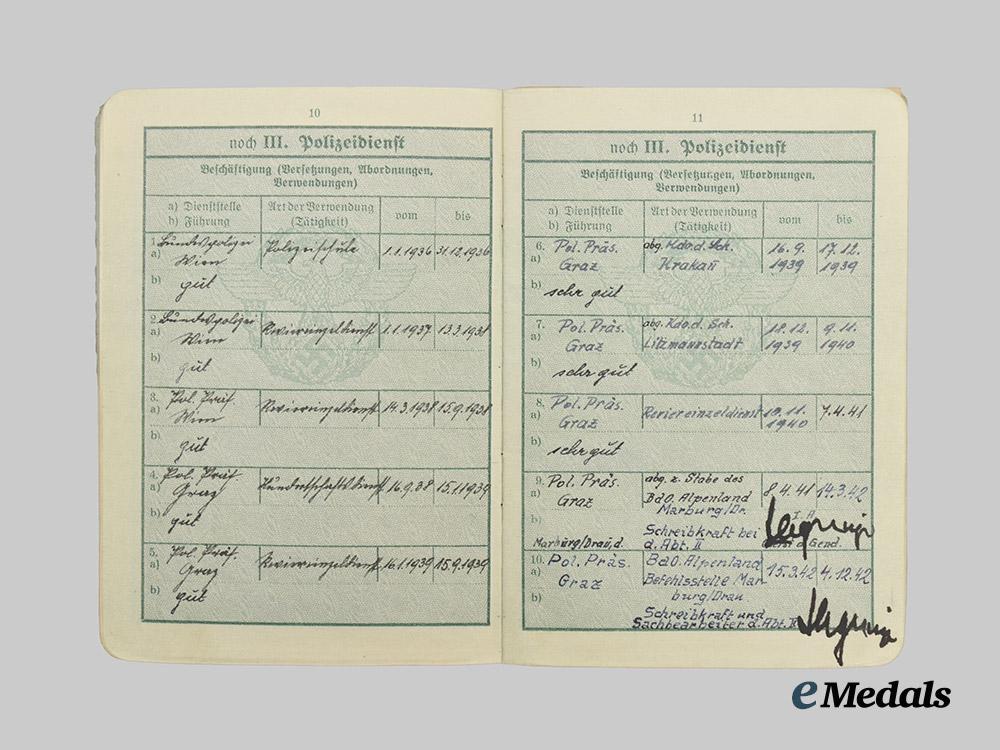 10
noch III. Polizeidienst
Beschäftigung (Versetzungen, Abordnungen,
Verwendungen)
a) Dienststelle
b) Führung
Art der Verwendung
(Tätigkeit)
vom
bis
1.
a)
Bundespolizei
Wien
Polizeischule
1.1.1936
31.12.1936
b)
gut
2.
a)
Bundespolizei
Wien
Reviereinzeldienst
1.1.1937
13.3.1938
b)
gut
3.
a)
Pol. Präs.
Wien
Reviereinzeldienst
14.3.1938
15.9.1938
b)
gut
4.
a)
Pol. Präs.
Graz
16.9.38
15.1.1939
b)
gut
5.
a)
Pol. Präs.
Graz
Reviereinzeldienst
16.1.1939
15.9.1939
b)
gut
11
noch III. Polizeidienst
Beschäftigung (Versetzungen, Abordnungen,
Verwendungen)
a) Dienststelle
b) Führung
Art der Verwendung
(Tätigkeit)
vom
bis
6.
a)
Pol. Präs.
Graz
abg. Kdo. d. Sch.
Krakau
16.9.
1939
17.12.
1939
b)
sehr gut
7.
a)
Pol. Präs.
Graz
abg. Kdo. d. Sch.
Litzmannstadt
18.12.
1939
9.11.
1940
b)
sehr gut
8.
a)
Pol. Präs.
Graz
Reviereinzeldienst
10.11.
1940
7.4.41
b)
sehr gut
9.
a)
Pol. Präs.
Graz
abg. z. Stabe des
BdO. Alpenland
Marburg/Dr.
8.4.41
14.3.42
b)
Marburg/Drau, d.
Schreibkraft bei
d. Abt. II
I.A.
d. Gend.
10.
a)
Pol. Präs.
Graz
BdO. Alpenland
Befehlsstelle Mar-
burg/Drau
15.3.42
4.12.42
b)
Schreibkraft und
Sachbearbeiter d. Abt. II
eMedals